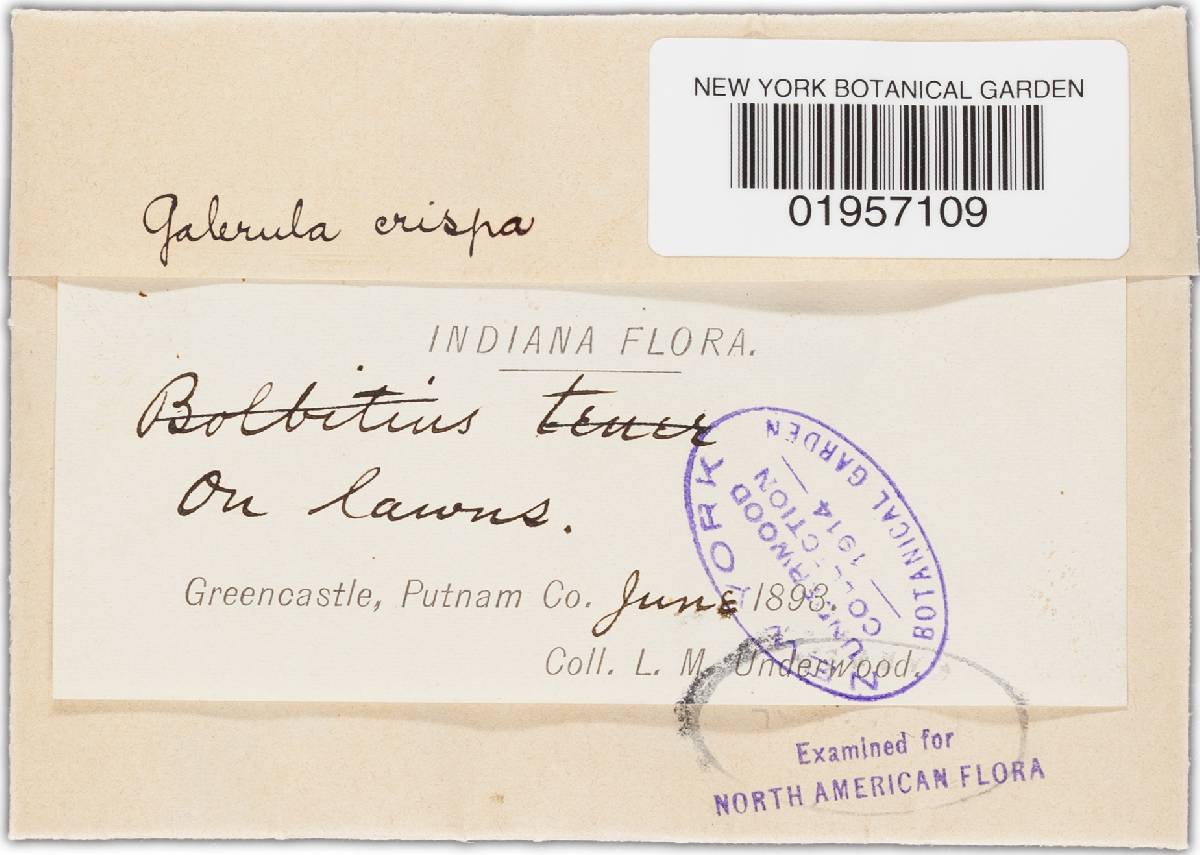 NEW YORK BOTANICAL GARDEN
01957109
Galerula crispa
INDIANA FLORA.
Bolbitius tener
On lawns.
Greencastle, Putnam Co. June 1893.
Coll. L. M. Underwood.
NEW YORK BOTANICAL GARDEN
UNDERWOOD
COLLECTION
— 1914 —
Examined for
NORTH AMERICAN FLORA